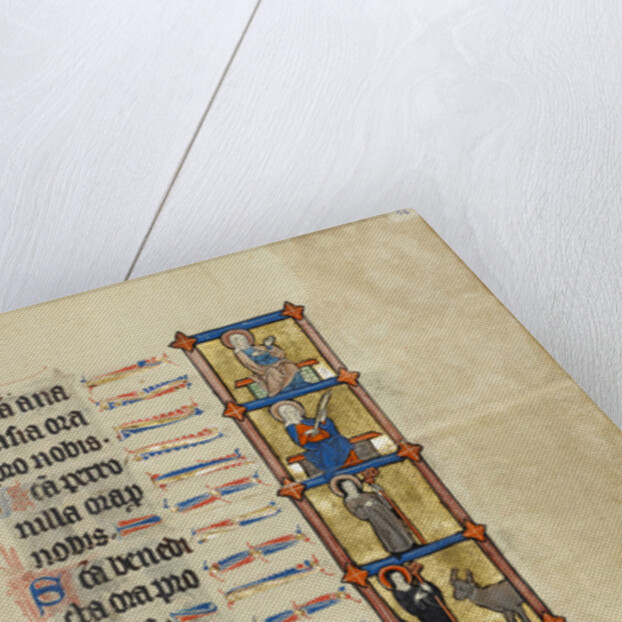 ā ana
asia ora
pro nobis.
Sca petro
nilla orap
nobis.
Sca benedi
cta ora pro